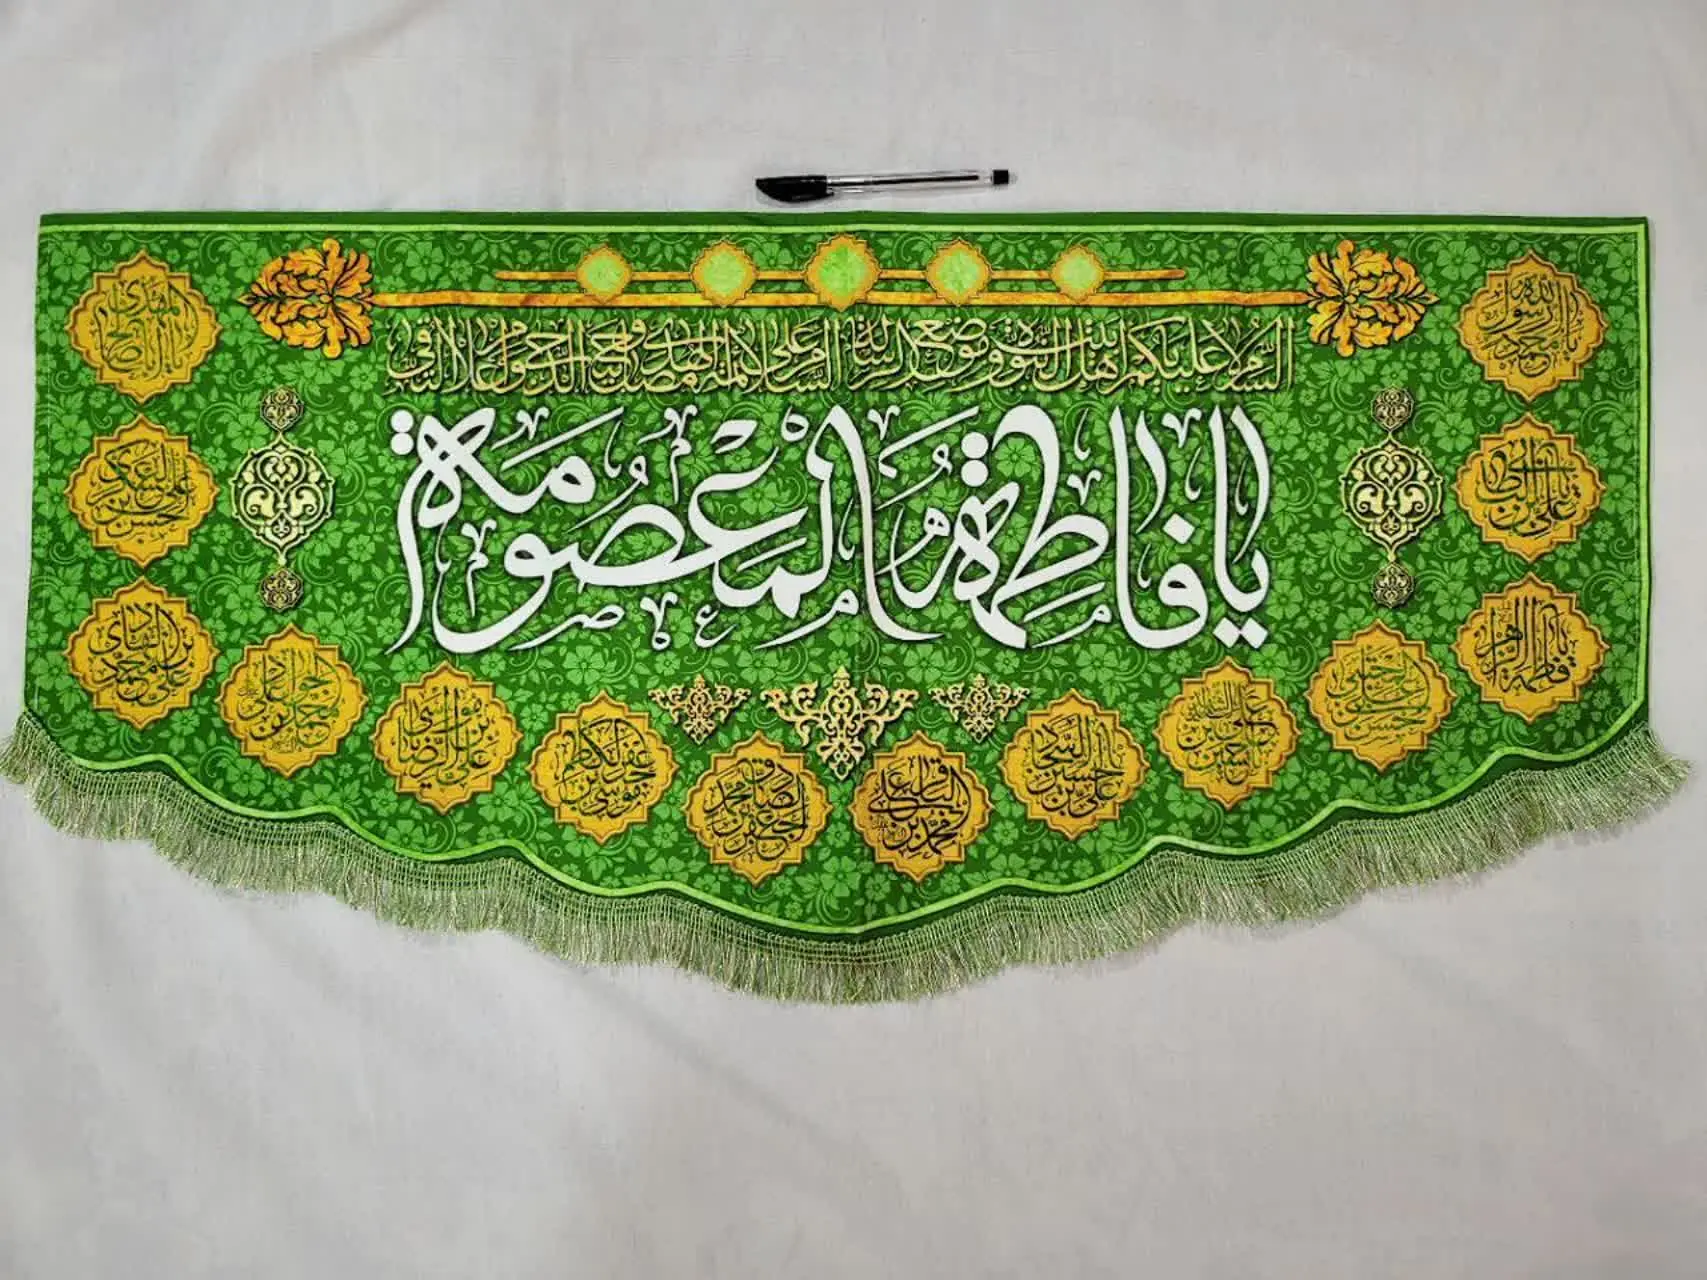 السلام علیکم یا اهل بیت النبوة و موضع الرسالة السلام علی ائمة الهدی و مصابیح الدجی
یا فاطمة المعصومة
یا محمد رسول الله
یا علی بن ابی طالب
یا فاطمة الزهرا
یا حسن بن علی مجتبی
یا حسین بن علی
یا علی بن حسین السجاد
یا محمد بن علی الباقر
یا جعفر بن محمد الصادق
موسی بن جعفر الکاظم
علی بن موسی الرضا
محمد بن علی جواد
علی بن محمد الهادی
حسن بن علی العسکری
یا اباصالح المهدی